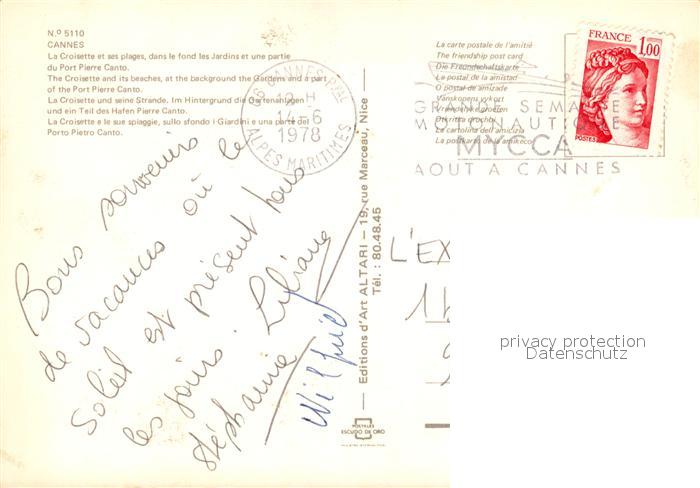 N.º 5110
CANNES
La Croisette et ses plages, dans le fond les Jardins et une partie
du Port Pierre Canto.
The Croisette and its beaches, at the background the Gardens and a part
of the Port Pierre Canto.
La Croisette und seine Strande. Im Hintergrund die Gartenanlagen
und ein Teil des Hafen Pierre Canto.
La Croisette e le sue spiaggie, sullo sfondo i Giardini e una parte del
Porto Pietro Canto.
06 CANNES PAL
12 H
14-6
1978
ALPES MARITIMES
La carte postale de l'amitié
The friendship post card
Die Freundschaftskarte
La postal de la amistad
O postal de amizade
Vänskapens vykort
La cartolina dell'amicizia
La postkarto de la amikeco
FRANCE
1,00
POSTES
GRANDE SEMAINE
MOTONAUTIQUE
MYCCA
AOUT A CANNES
Bons souvenirs
de vacances où le
Soleil est présent tous
les jours. Liliane
Stéphanie
Wilfrid
Editions d'Art ALTARI — 19, rue Marceau, Nice
Tél.: 80.48.45
L'EX
POSTALES
ESCUDO DE ORO
privacy protection
Datenschutz